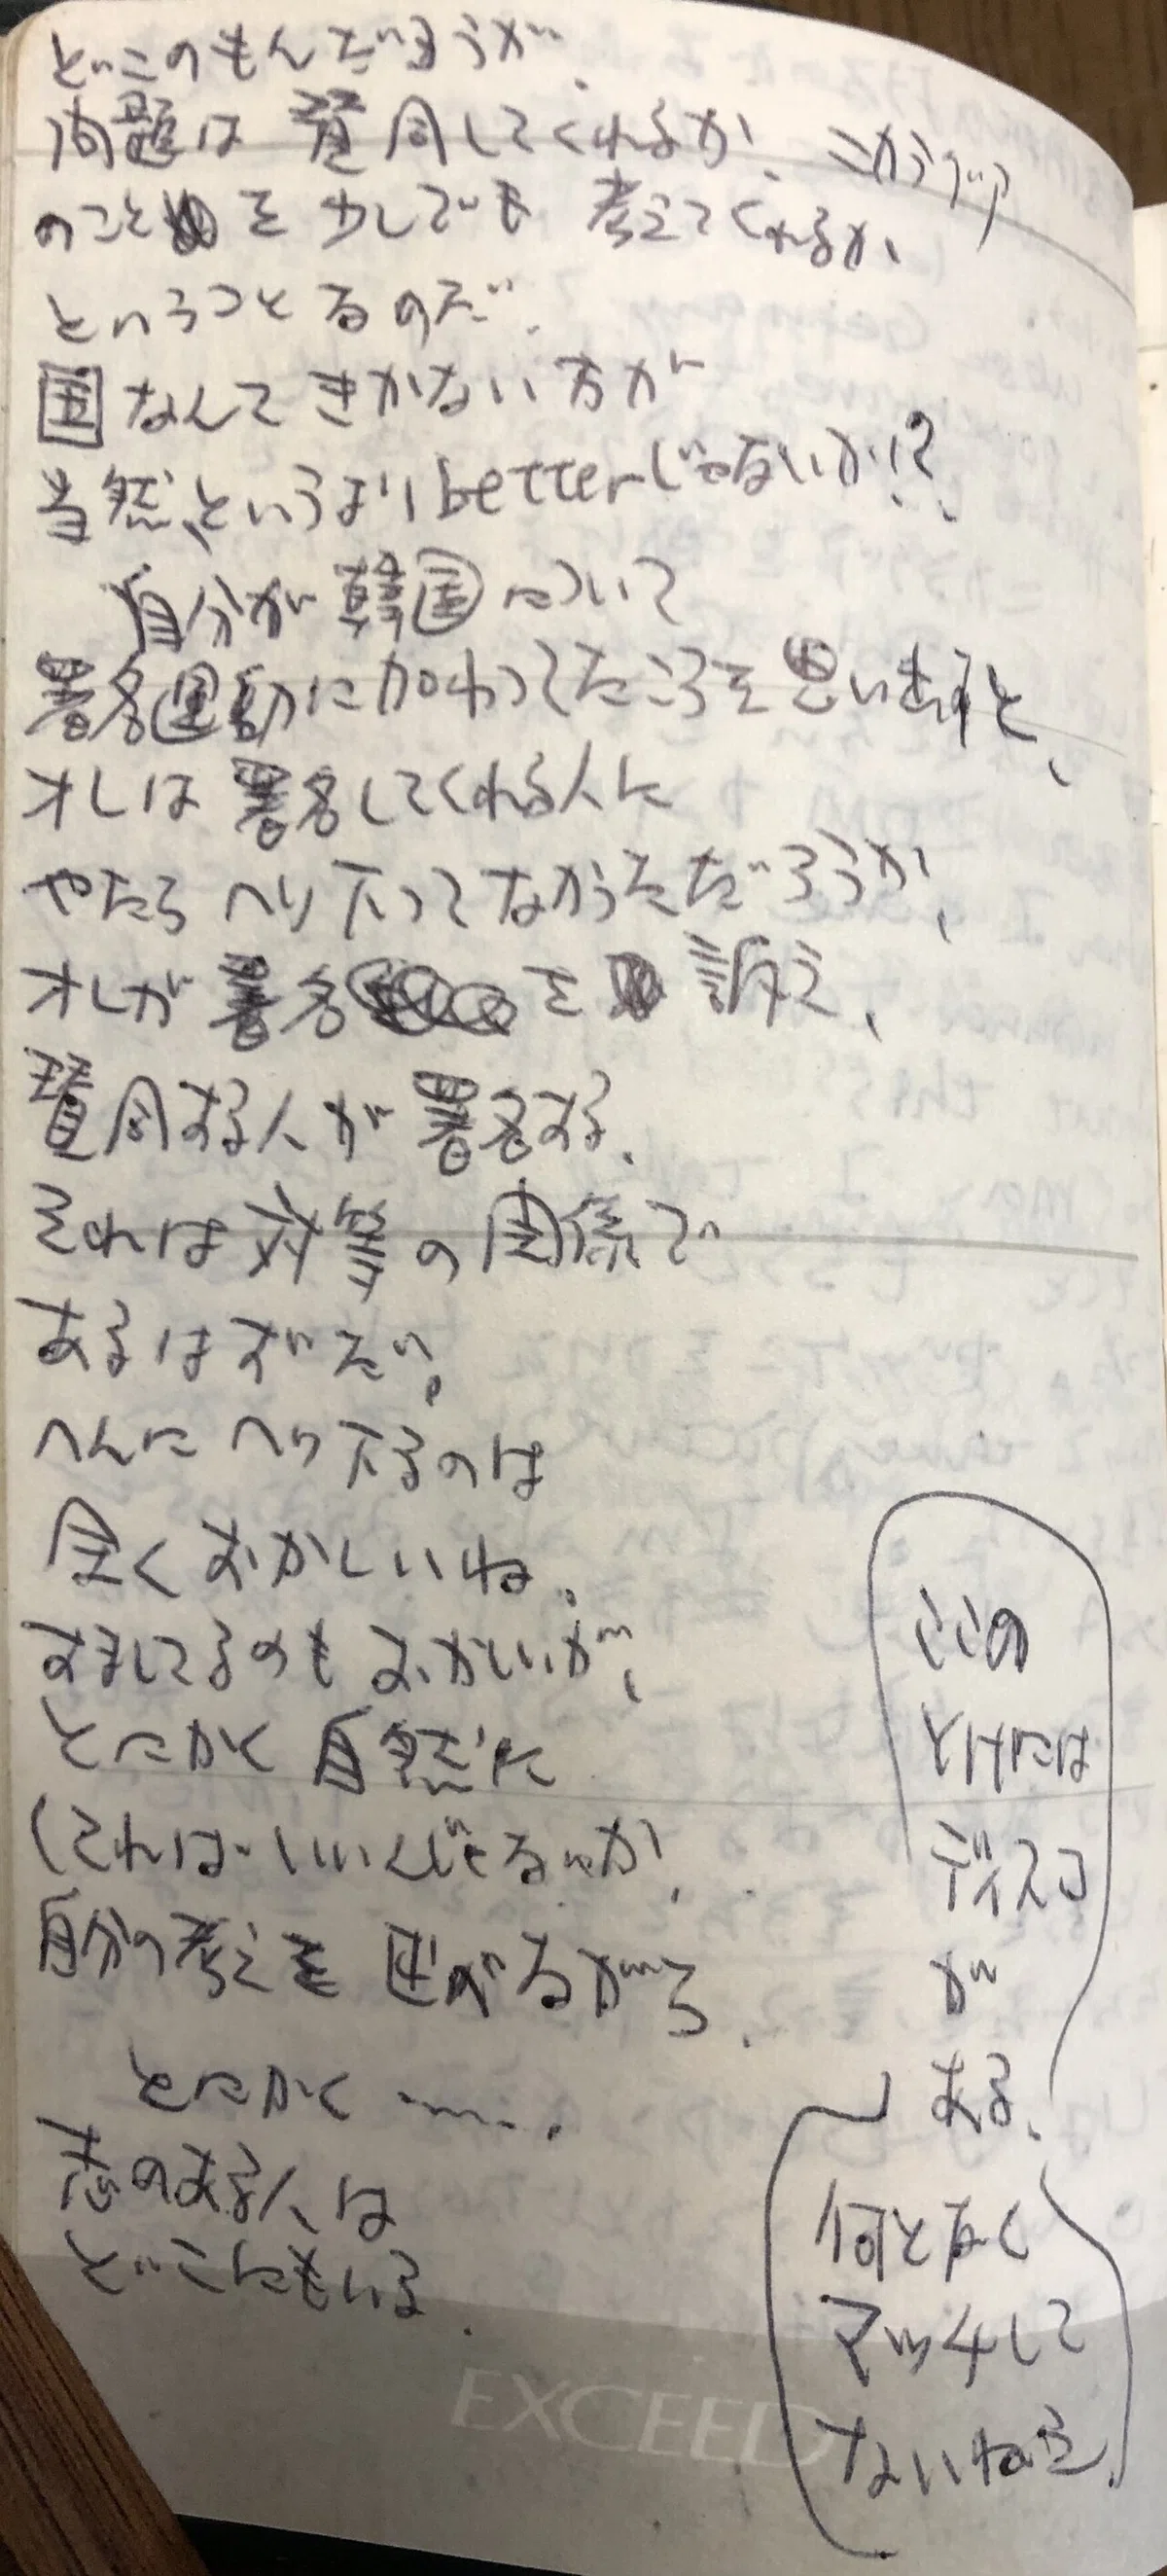 どこのもんだろうが、
問題は賛同してくれるか、ニカラグア
のことを少しでも考えてくれるか、
ということなのだ。
国なんてきかない方が
当然、というよりbetterじゃないか!?
自分が韓国について
署名運動に加わってたころを思い出すと、
オレは署名してくれる人に
やたらへり下ってなかっただろうか、
オレが署名を訴え、
賛同する人が署名する。
それは対等の関係で
あるはずだ。
へんにへり下るのは
全くおかしいね。
すましてるのもおかしいが、
とにかく自然に
(それはいいんじゃないか、
自分の考えを述べながら、
とにかく……。
志のある人は
どこにもいる。
ここの
とけには
ディスコ
が
ある。
何となく
マッチして
ないねえ。
EXCEED